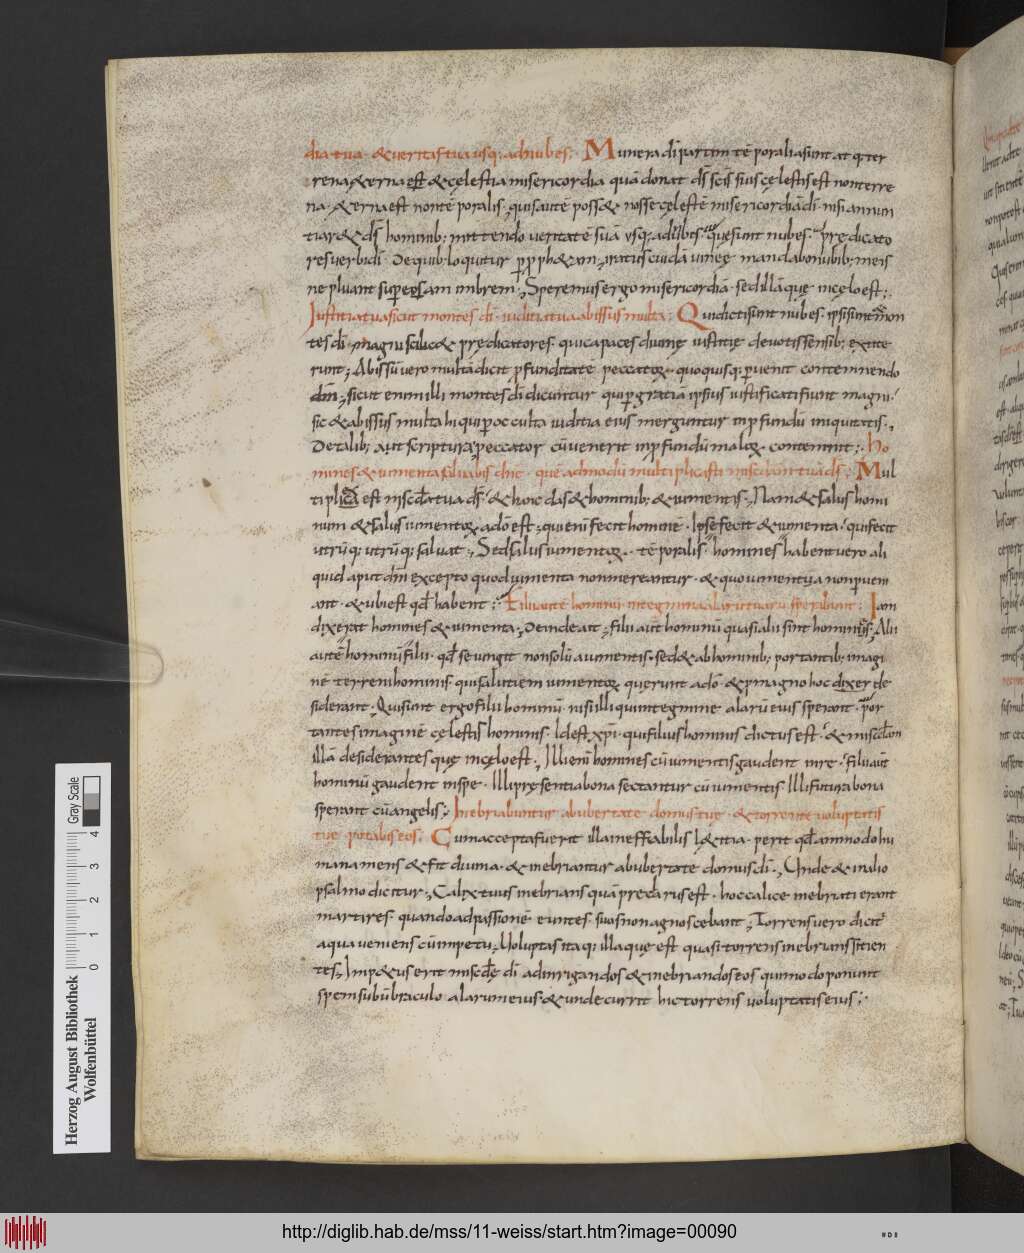 dia tua · & veritas tua usq; ad nubes; Munera dī partim tēporalia sunt at q; ter
rena & ęterna est & cęlestia misericordia quā donat dš scīs suis cęlestis est non terre
na · & ęterna est non tēporalis · quis autē poss& nosse cęlestē misericordiā dī · nisi annun
tiar& dš hominib; mittendo veritatē suā usq; ad nubes · quę sunt nubes · prędicato
res verbi dī · De quib; loquitur p̄ proph&am iratus cuidā uineę mandabo nubib; meis
ne pluant sup eam imbrem · Speremus ergo misericordiā · sed illā quę in cęlo est;
Iustitia tua sicut montes dī · iuditia tua abissus multa; Qui dicti sunt nubes · ipsi sunt mon
tes dī · magni scilic& prędicatores · qui capaces diuinę iustitię deuotis sensib; extite
runt; Abissū vero multā dicit p̄funditatē peccatorꝝ · quo quisq; peruenit contemnendo
dm̄; sicut enim illi montes dī dicuntur qui p gratiā ipsius iustificati fiunt magni ·
sic & abissus multa hi qui p occulta iuditia eius merguntur in pfundū iniquitatis;
De talib; ait scriptura peccator cū venerit in pfundū malorꝝ contemnit; Ho
mines & iumenta saluabis dn̄e · quē admodū multiplicasti mis̄cdiam tuā dš; Mul
tiplicata est mis̄cdia tua dš · & hanc das & hominib; & iumentis; Nam & salus homi
num & salus iumentorꝝ a dō est; qui enī fecit hominē · ipse fecit & iumenta · qui fecit
utrūq; utrūq; saluat; Sed salus iumentorꝝ · tēporalis · homines habent uero ali
quid aput dm̄ excepto quod iumenta non mereantur · & quo iumenta non perueni
ant · & ubi est qd̄ habent; Filii autē hominū in tegmine alarū tuarū sperabunt; Iam
dixerat homines & iumenta; Deinde ait; filii autē hominū quasi alii sint hominis; Alii
autē hominū filii · qd̄ seiungit non solū a iumentis · sed & ab hominib; portantib; imagi
nē terreni hominis · qui salutem iumentorꝝ querunt a dō · & p magno hoc dixer de
siderant · Qui sunt ergo filii hominū · nisi illi qui in tegmine alarū eius sperant · por
tantes imaginē cęlestis hominis · Id est xp̄i · qui filius hominis dictus est · & mis̄cdiam
illā desiderantes quę in cęlo est; Illi enī homines cū iumentis gaudent in re · filii aūt
hominū gaudent in spe · Illi pręsentia bona sectantur cū iumentis Illi futura bona
sperant cū angelis; Inebriabuntur ab ubertate domus tuę · & torrente uoluptatis
tuę potabis eos; Cum accepta fuerit illa ineffabilis lętitia · perit qd̄ ammodo hu
mana mens & fit diuina · & inebriantur ab ubertate domus dī; Unde & in alio
psalmo dicitur; Calix tuus inebrians quā preclarus est · hoc calice inebriati erant
martires · quando ad passionē euntes suos non agnoscebant; Torrens uero dicitr̄
aqua ueniens cū impetu; Uoluptas itaq; illa quę est quasi torrens inebrians sitien
tes; Imp&us erit mis̄cdię dī ad inrigandos & inebriandos eos qui modo ponunt
spem sub ūbraculo alarum eius · & unde currit hic torrens uoluptatis eius;
Herzog August Bibliothek
Wolfenbüttel
0 1 2 3 4
Gray Scale
http://diglib.hab.de/mss/11-weiss/start.htm?image=00090